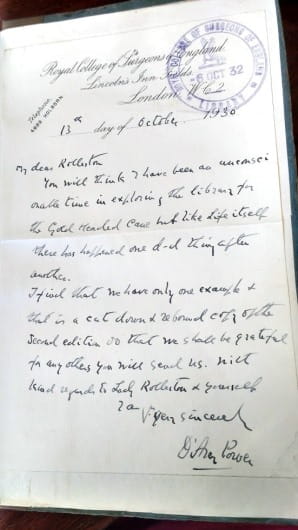 Royal College of Surgeons of England
Lincoln's Inn Fields
London. W.C.2
Telephone
HOLBORN
ROYAL COLLEGE OF SURGEONS OF ENGLAND
OCT 32
LIBRARY
13th day of October 1930
My dear Rolleston
You will think I have been an unconsci
onable time in exploring the library for
the Gold Headed Cane but like life itself
there has happened one d-d thing after
another.
I find that we have only one example &
that is a cut down & rebound copy of the
Second edition so that we shall be grateful
for any others you will send us. With
kind regards to Lady Rolleston & yourself
I am
Yours sincerely
D'Arcy Power